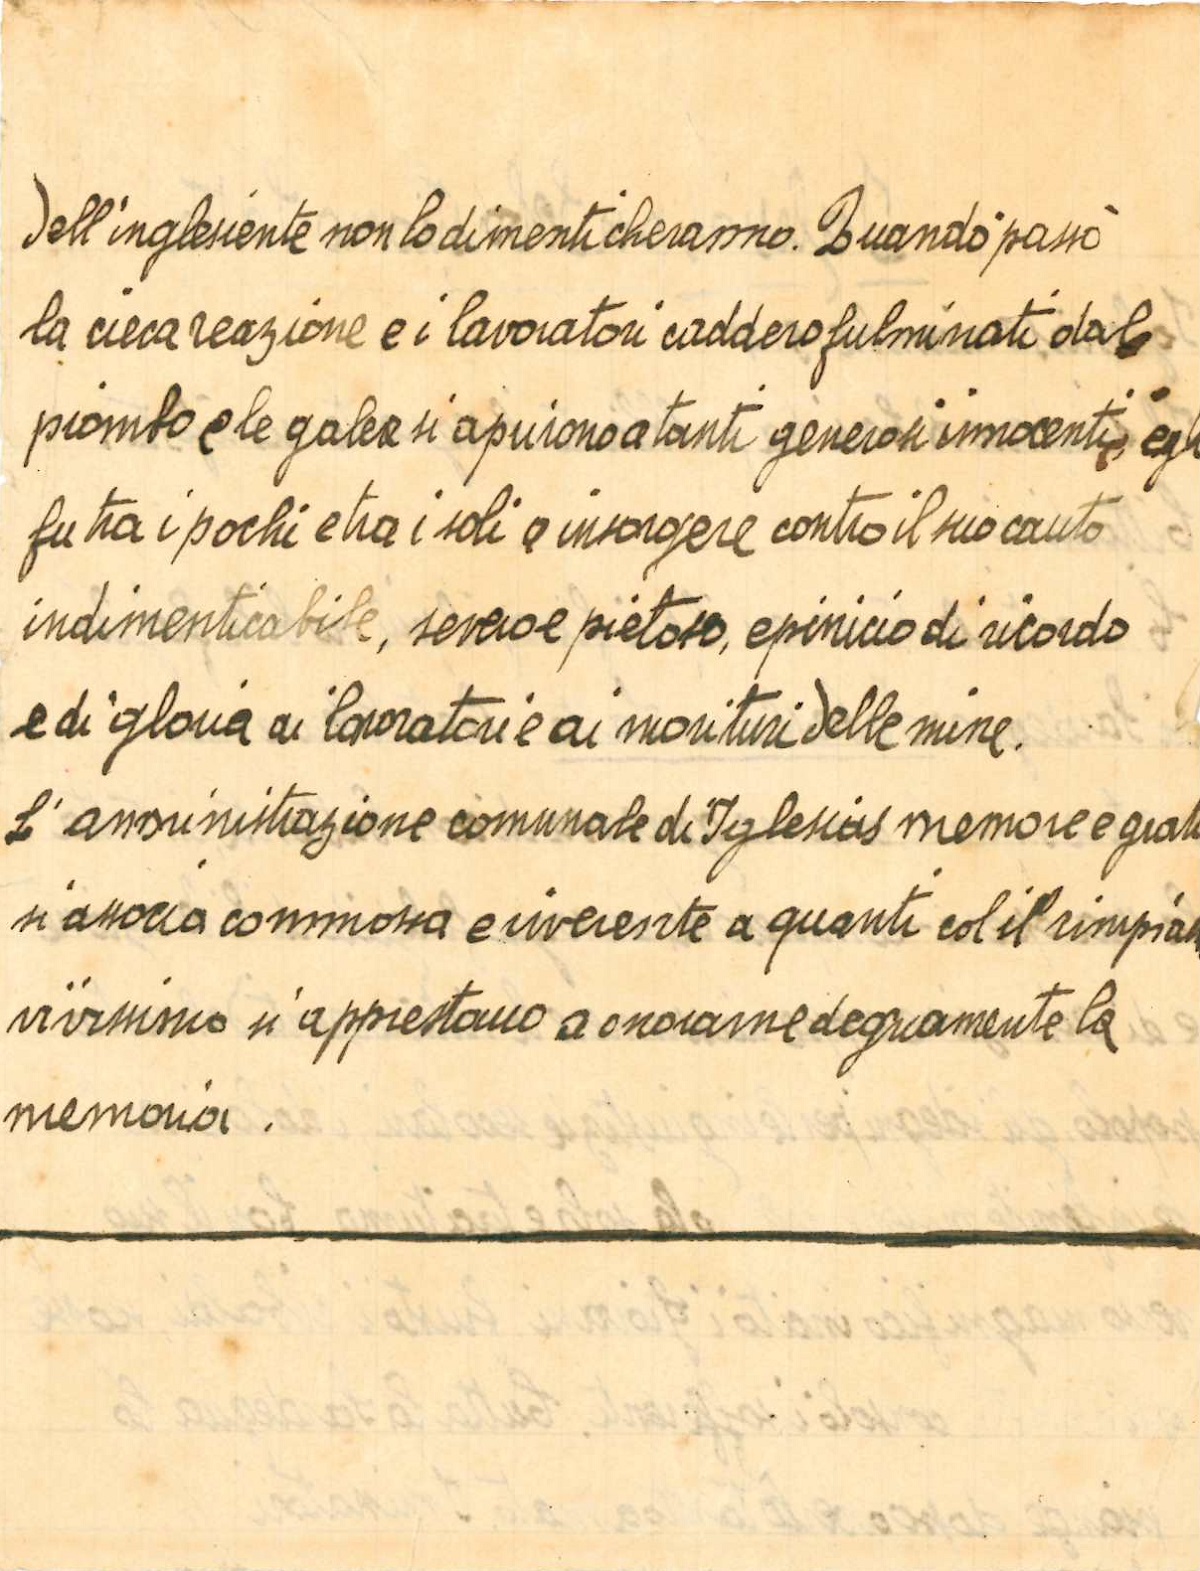 dell'inglesiente non lo dimenticheranno. Quando passò
la cieca reazione e i lavoratori caddero fulminati dal
piombo e le galere si aprirono a tanti generosi innocenti, egli
fu tra i pochi e tra i soli a insorgere contro il suo canto
indimenticabile, severo e pietoso, epinicio di ricordo
e di gloria ai lavoratori e ai morituri delle mine.
L'amministrazione comunale di Iglesias memore e grata
si associa commossa e riverente a quanti col il rimpianto
vivissimo si apprestano a onorarne degnamente la
memoria.